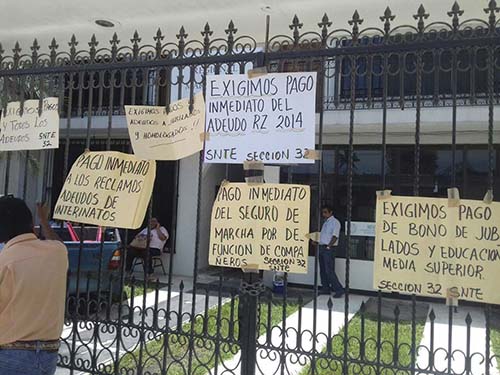 EXIGIMOS PAGO
Y TODOS LOS
ADEUDOS SNTE
32
EXIGIMOS PAGOS
ADEUDOS A JUBILADOS
Y HOMOLOGADOS
EXIGIMOS PAGO
INMEDIATO DEL
ADEUDO RZ 2014
SNTE SECCION 32
PAGO INMEDIATO
A LOS RECLAMOS
ADEUDOS DE
INTERINATOS
PAGO INMEDIATO
DEL SEGURO DE
MARCHA POR DE-
FUNCION DE COMPA
ÑEROS SECCION 32
SNTE
EXIGIMOS PAGO
DE BONO DE JUBI
LADOS Y EDUCACION
MEDIA SUPERIOR.
SECCION 32 SNTE